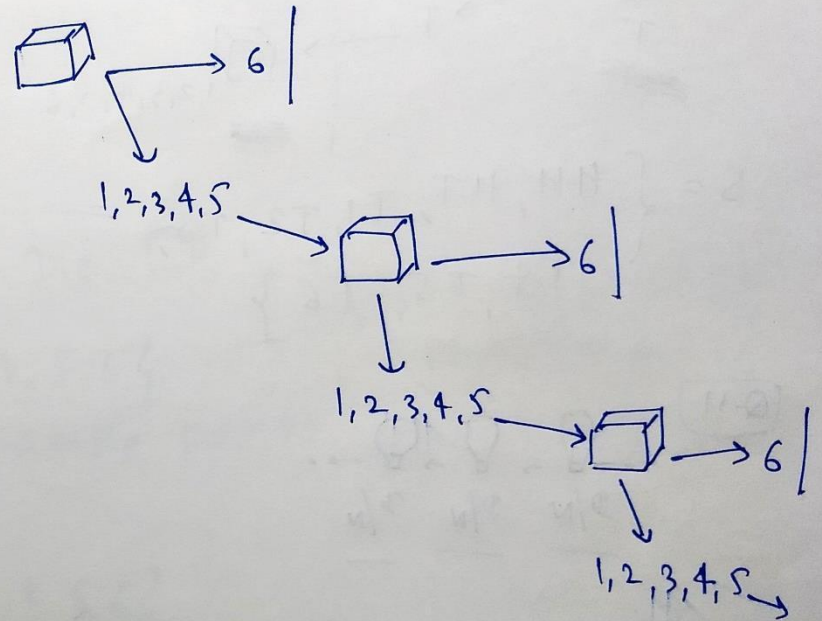 6
1, 2, 3, 4, 5
6
1, 2, 3, 4, 5
6
1, 2, 3, 4, 5